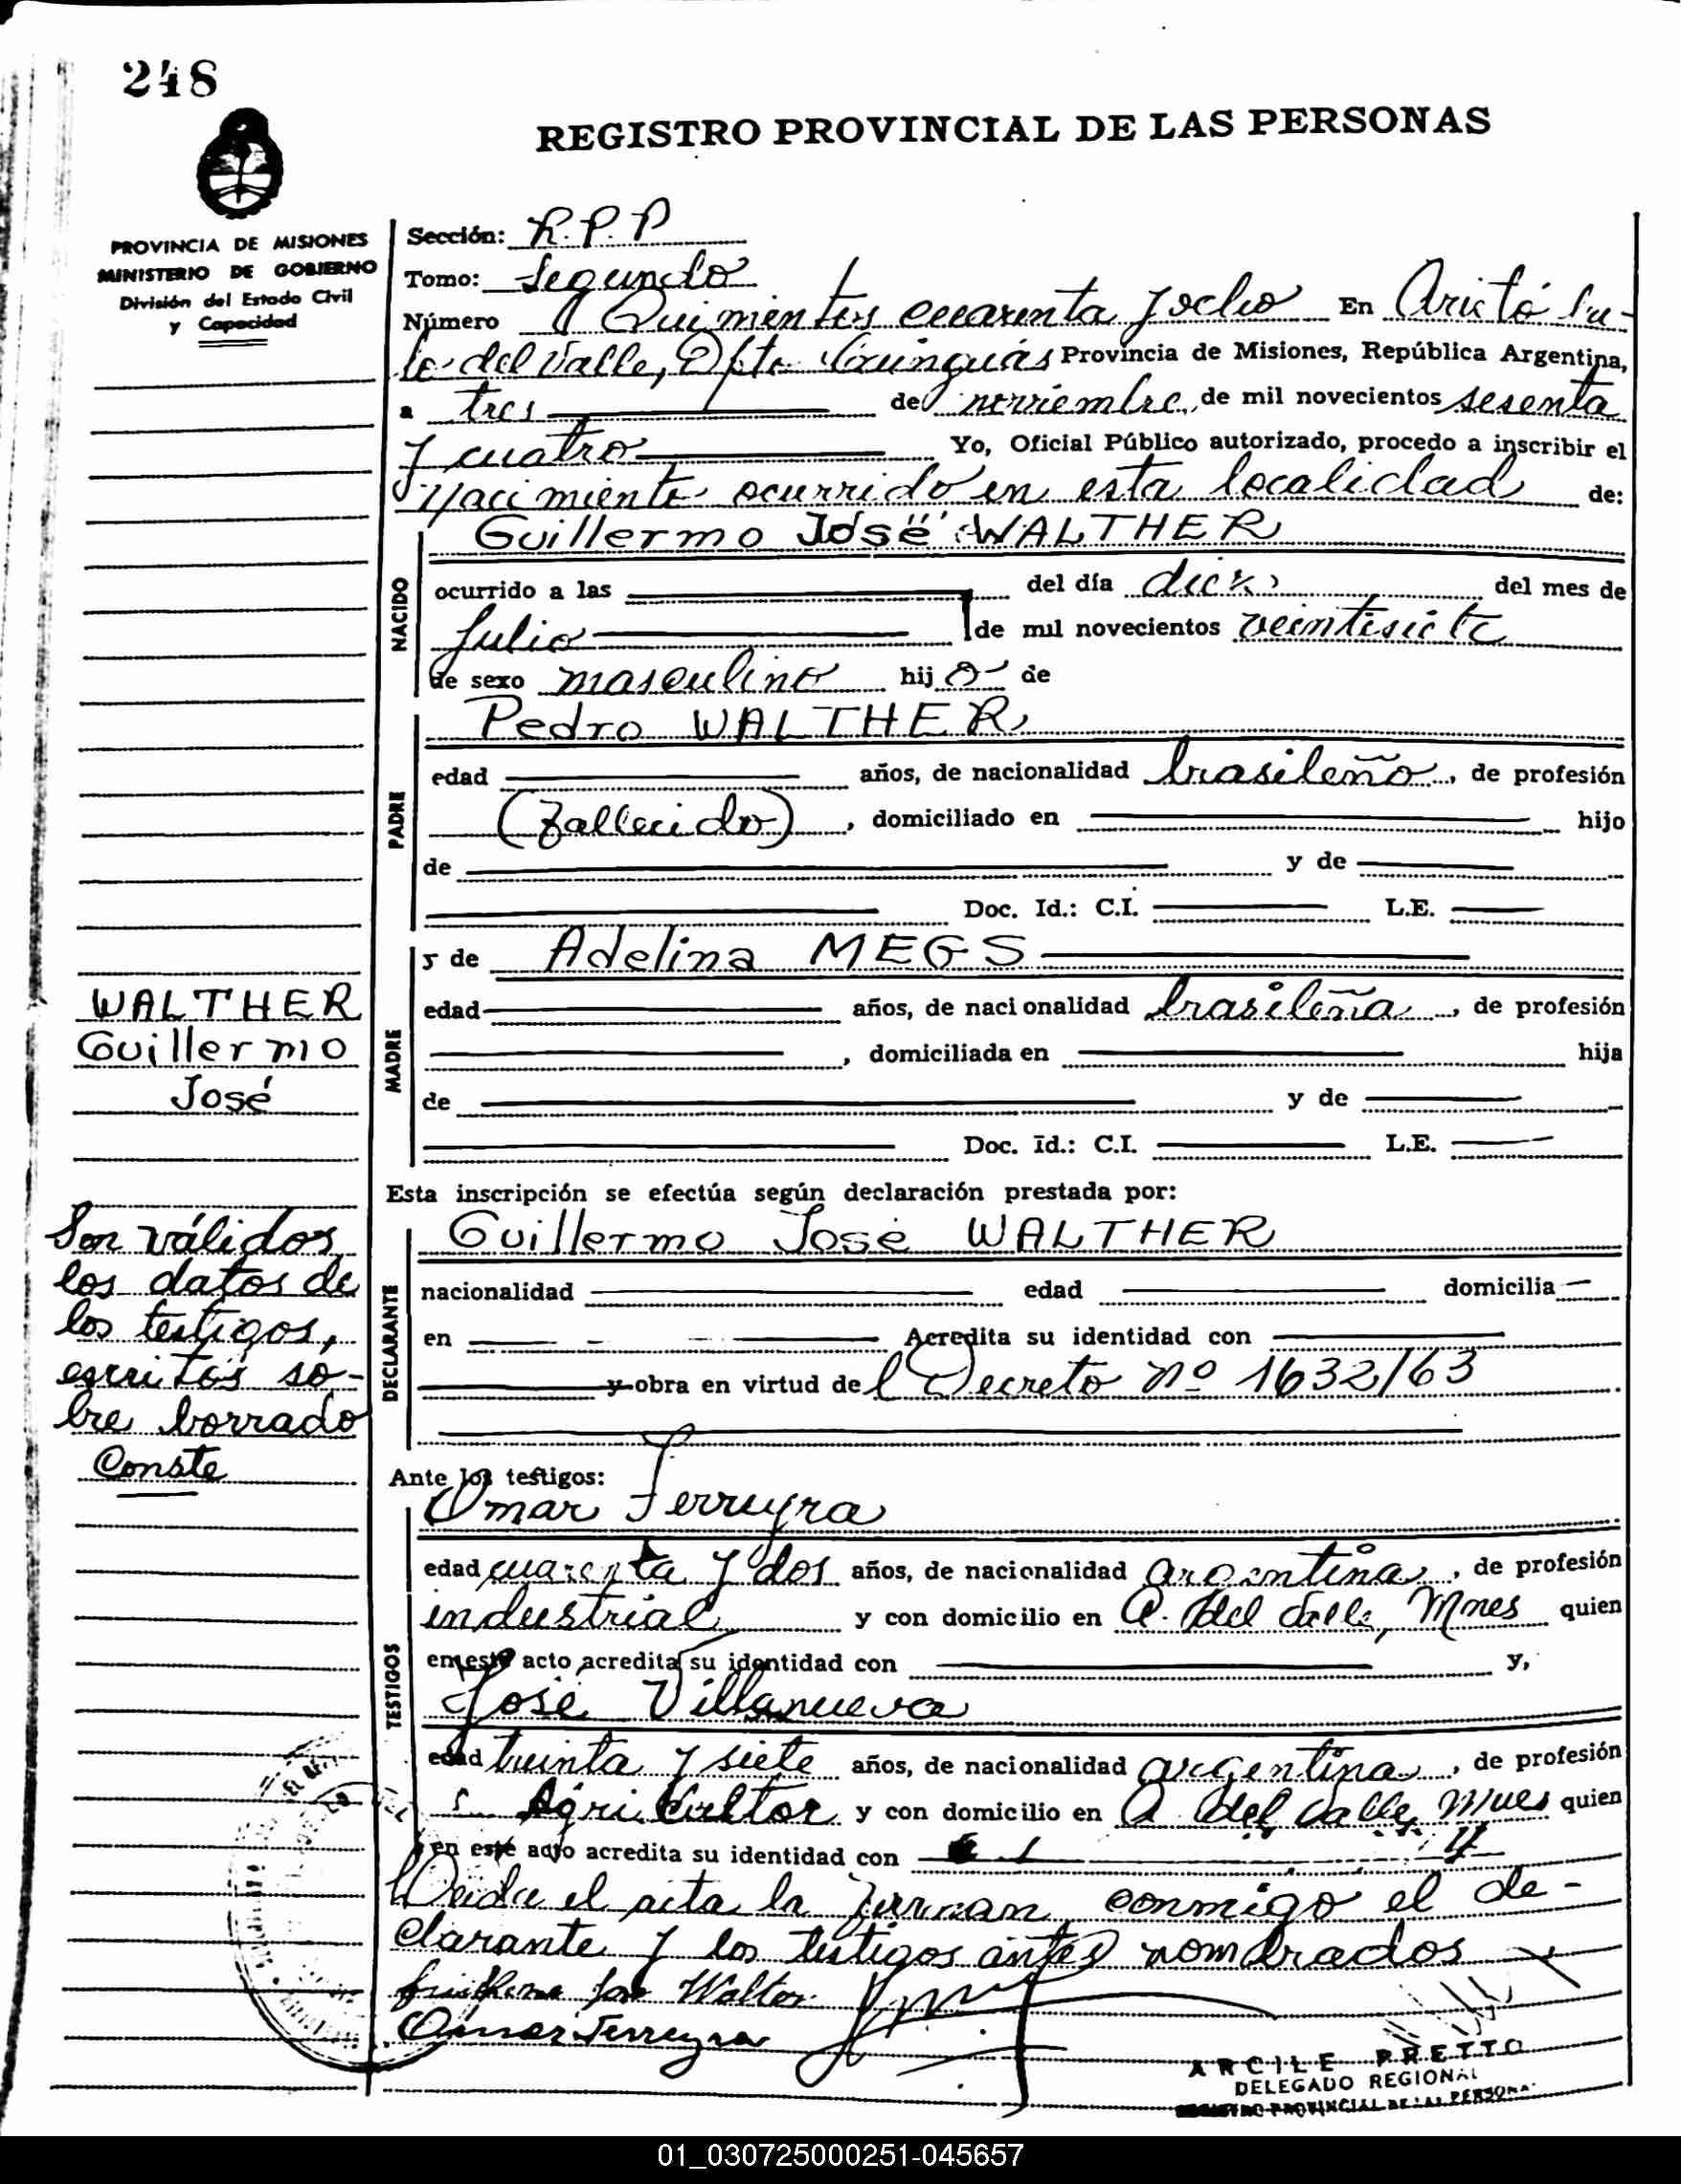 248
REGISTRO PROVINCIAL DE LAS PERSONAS
PROVINCIA DE MISIONES
MINISTERIO DE GOBIERNO
División del Estado Civil
y Capacidad
Sección: R.P.P
Tomo: Segundo
Número Quinientos cuarenta y ocho En Aristó bu-
lo del Valle, Dpto. Cainguás Provincia de Misiones, República Argentina,
a tres de noviembre de mil novecientos sesenta
y cuatro Yo, Oficial Público autorizado, procedo a inscribir el
Nacimiento ocurrido en esta localidad de:
NACIDO
Guillermo José WALTHER
ocurrido a las del día diez del mes de
Julio de mil novecientos veintisiete
de sexo masculino hij o de
PADRE
Pedro WALTHER
edad años, de nacionalidad brasileño, de profesión
(Fallecido), domiciliado en hijo
de y de
Doc. Id.: C.I. L.E.
MADRE
y de Adelina MEGS
edad años, de nacionalidad brasileña, de profesión
, domiciliada en hija
de y de
Doc. Id.: C.I. L.E.
WALTHER
Guillermo
José
Son válidos
los datos de
los testigos,
escritos so-
bre borrado
Conste
Esta inscripción se efectúa según declaración prestada por:
DECLARANTE
Guillermo José WALTHER
nacionalidad edad domicilia
en Acredita su identidad con
y obra en virtud de l Decreto nº 1632/63
Ante los testigos:
TESTIGOS
Omar Ferreyra
edad cuarenta y dos años, de nacionalidad argentina, de profesión
industrial y con domicilio en A. del Valle, Mnes quien
en este acto acredita su identidad con y,
José Villanueva
edad treinta y siete años, de nacionalidad argentina, de profesión
Agricultor y con domicilio en A. del Valle, Mnes quien
en este acto acredita su identidad con
Leida el acta la firman conmigo el de-
clarante y los testigos antes nombrados
Guillermo José Walter
Omar Ferreyra
ARCILE PRETTO
DELEGADO REGIONAL
REGISTRO PROVINCIAL DE LAS PERSONAS
01_030725000251-045657